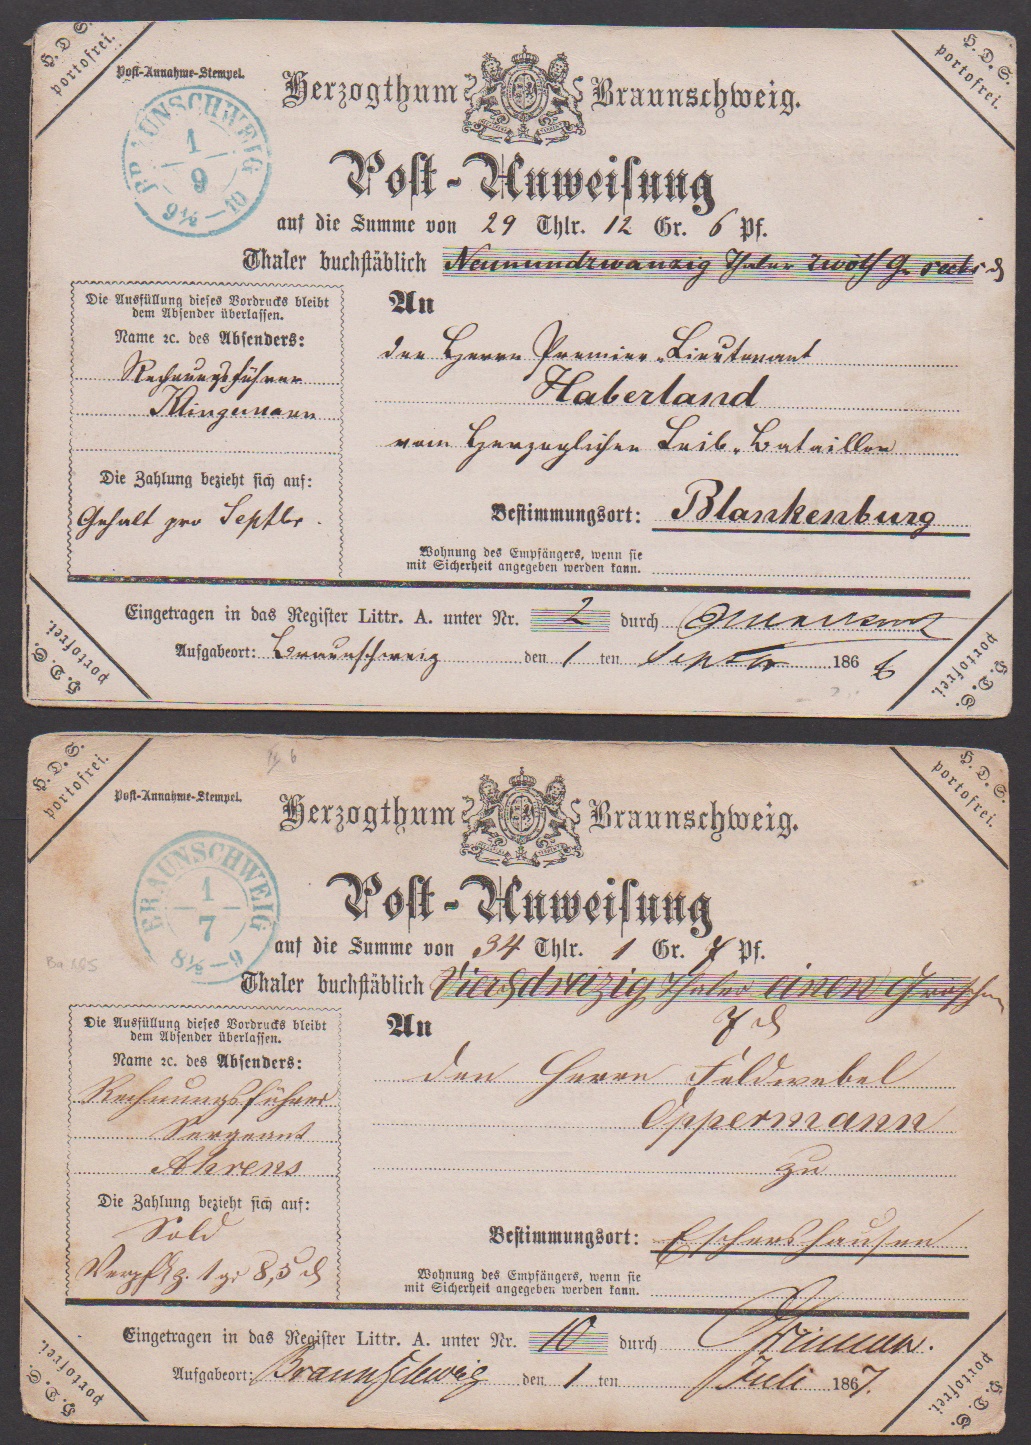 H. D. S.
portofrei.
H. D. S.
portofrei.
Post-Annahme-Stempel.
Herzogthum Braunschweig.
BRAUNSCHWEIG
1
9
9½—10
Post-Anweisung
auf die Summe von 29 Thlr. 12 Gr. 6 Pf.
Thaler buchstäblich Neunundzwanzig Thaler zwölf Gr sechs ₰
Die Ausfüllung dieses Vordrucks bleibt
dem Absender überlassen.
Name ꝛc. des Absenders:
Rechnungsführer
Klingemann
Die Zahlung bezieht sich auf:
Gehalt pro Septbr.
An
den Herrn Premier-Lieutenant
Haberland
vom Herzoglichen Leib-Bataillon
Bestimmungsort: Blankenburg
Wohnung des Empfängers, wenn sie
mit Sicherheit angegeben werden kann.
Eingetragen in das Register Littr. A. unter Nr. 2 durch
Aufgabeort: Braunschweig den 1 ten Septbr 1866
H. D. S.
portofrei.
H. D. S.
portofrei.
H. D. S.
portofrei.
H. D. S.
portofrei.
Post-Annahme-Stempel.
Herzogthum Braunschweig.
BRAUNSCHWEIG
1
7
8½—9
Post-Anweisung
auf die Summe von 34 Thlr. 1 Gr. 7 Pf.
Thaler buchstäblich Vierunddreizig Thaler einen Groschen
7 ₰
Die Ausfüllung dieses Vordrucks bleibt
dem Absender überlassen.
Name ꝛc. des Absenders:
Rechnungsführer
Sergeant
Ahrens
Die Zahlung bezieht sich auf:
Sold
1 gr 8,5 ₰
An
den Herrn Feldwebel
Oppermann
zu
Bestimmungsort: Eschershausen
Wohnung des Empfängers, wenn sie
mit Sicherheit angegeben werden kann.
Eingetragen in das Register Littr. A. unter Nr. 10 durch
Aufgabeort: Braunschweig den 1 ten Juli 1867.
H. D. S.
portofrei.
H. D. S.
portofrei.